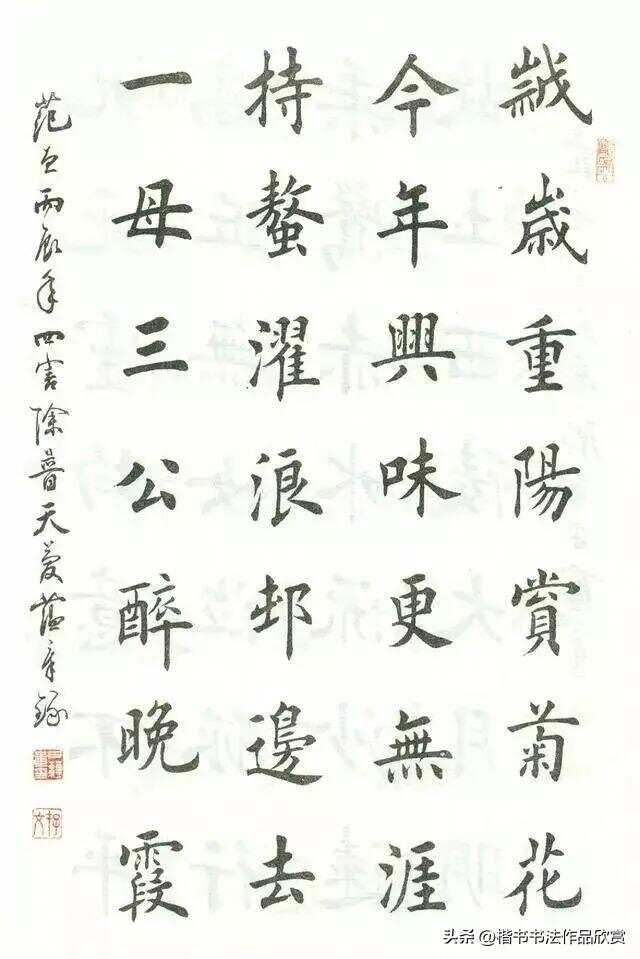 歲歲重陽賞菊花
今年興味更無涯
持螯濯浪邨邊去
一母三公醉晚霞
丙辰年四害除普天慶
头条 @楷书书法作品欣赏